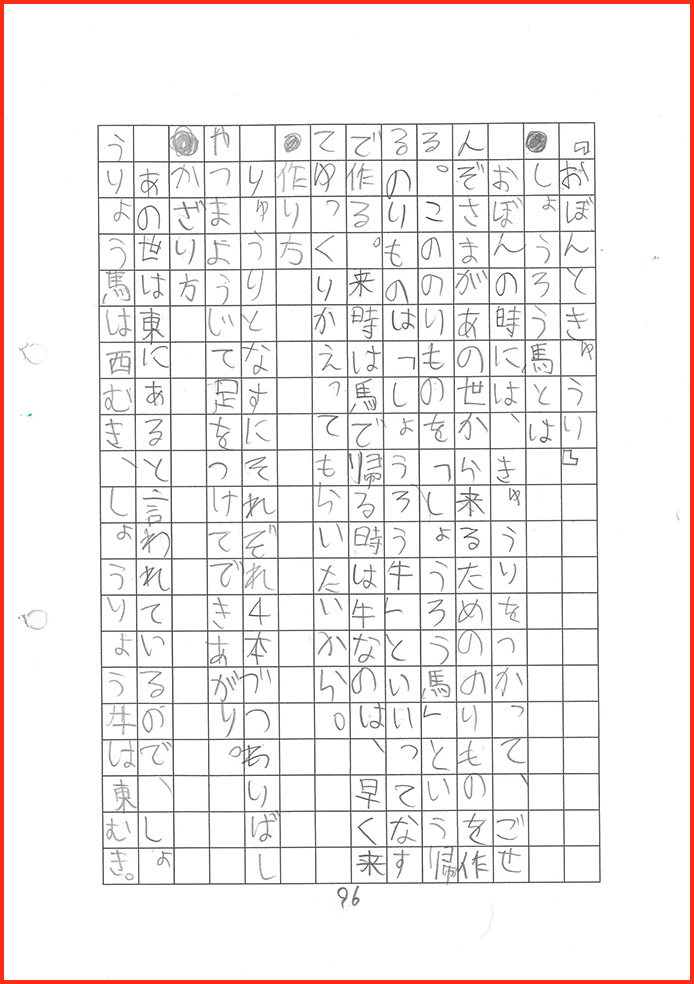 「おぼんときゅうり」
●しょうろう馬とは
おぼんの時には、きゅうりをつかって、ごせ
んぞさまがあの世から来るためののりものを作
る。こののりものを「しょうろう馬」という帰
るのりものは「しょうろう牛」といいってなす
で作る。来時は馬で帰る時は牛なのは、早く来
てゆっくりかえってもらいたいから。
●作り方
りゅうりとなすにそれぞれ4本づつわりばし
やつまようじて足をつけてできあがり。
●かざり方
あの世は東にあると言われているので、しょ
うりょう馬は西むき、しょうりょう牛は東むき。
96